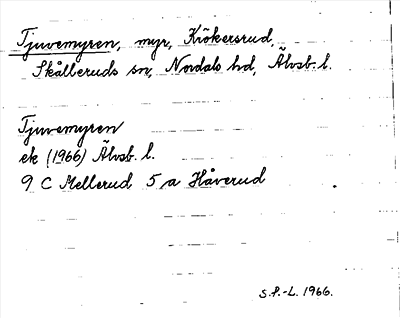 Tjuvemyren, myr, Krökersrud,
Skålleruds sn, Nordals hd, Älvsb. l.
Tjuvemyren
ek (1966) Älvsb. l.
9 C Mellerud 5 a Håverud
S.P.-L. 1966.